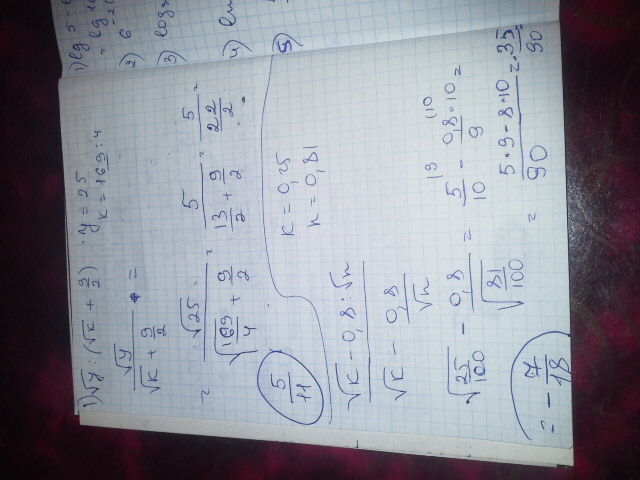 1) √y : (√k + 9/2) · y = 25
k = 169 : 4
√y / (√k + 9/2) =
= √25 / (√(169/4) + 9/2) = 5 / (13/2 + 9/2) = 5 / (22/2) =
5/11
k = 0,25
n = 0,81
√k - 0,8 : √n
√k - 0,8/√n
√(25/100) - 0,8/√(81/100) = 5/10 - 0,8·10/9 =
= (5·9 - 8·10)/90 = -35/90 =
= -7/18
1) lg 5 -
= lg
2) 6
3) log
4)
5)